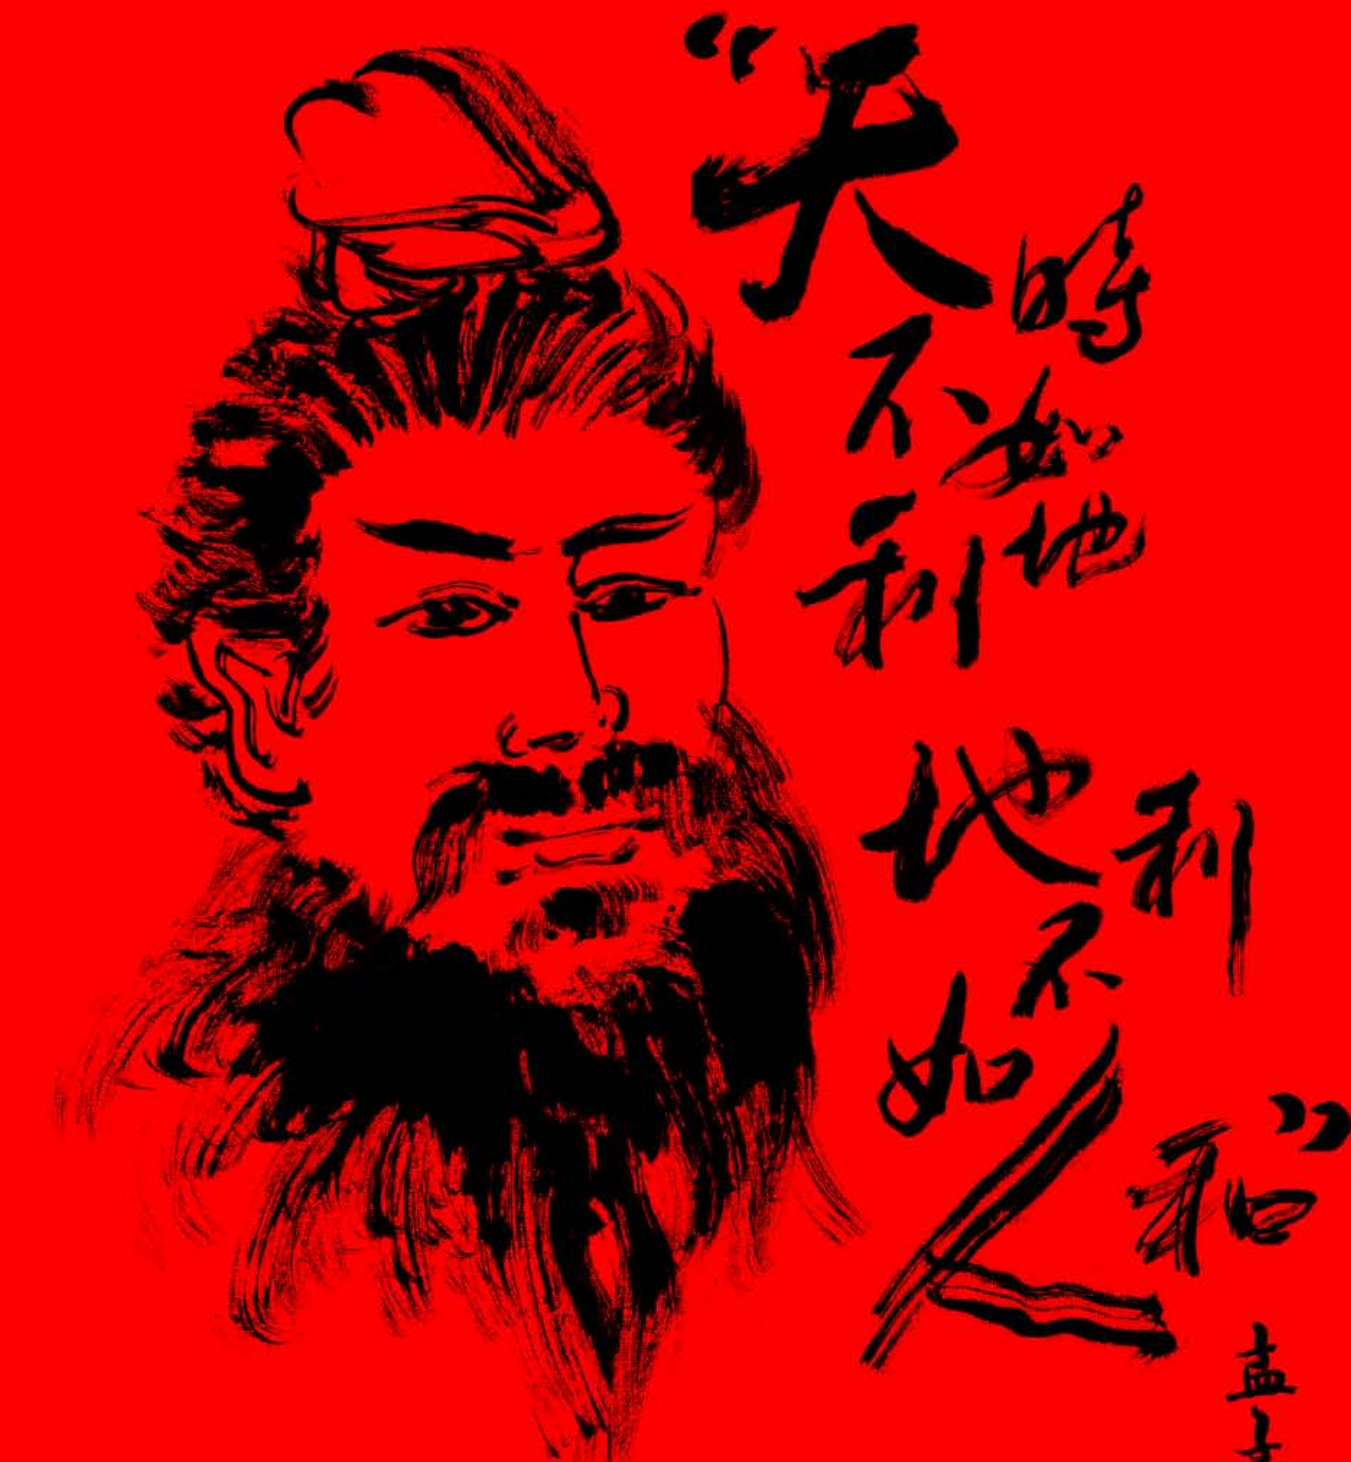 “天時
不如地
利
地利
不
如人和”
孟子